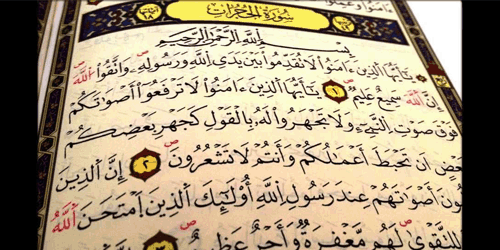 ءَامَنُوا وَعَمِلُوا
سُورَةُ الحُجُرَاتِ
بِسْمِ اللَّهِ الرَّحْمَٰنِ الرَّحِيمِ
يَا أَيُّهَا الَّذِينَ ءَامَنُوا لَا تُقَدِّمُوا بَيْنَ يَدَيِ اللَّهِ وَرَسُولِهِ وَاتَّقُوا اللَّهَ
إِنَّ اللَّهَ سَمِيعٌ عَلِيمٌ ١ يَا أَيُّهَا الَّذِينَ ءَامَنُوا لَا تَرْفَعُوا أَصْوَاتَكُمْ
فَوْقَ صَوْتِ النَّبِيِّ وَلَا تَجْهَرُوا لَهُ بِالْقَوْلِ كَجَهْرِ بَعْضِكُمْ
أَن تَحْبَطَ أَعْمَالُكُمْ وَأَنتُمْ لَا تَشْعُرُونَ ٢ إِنَّ الَّذِينَ
أَصْوَاتَهُمْ عِندَ رَسُولِ اللَّهِ أُولَٰئِكَ الَّذِينَ امْتَحَنَ اللَّهُ
لِلتَّقْوَىٰ لَهُم مَّغْفِرَةٌ وَأَجْرٌ عَظِيمٌ